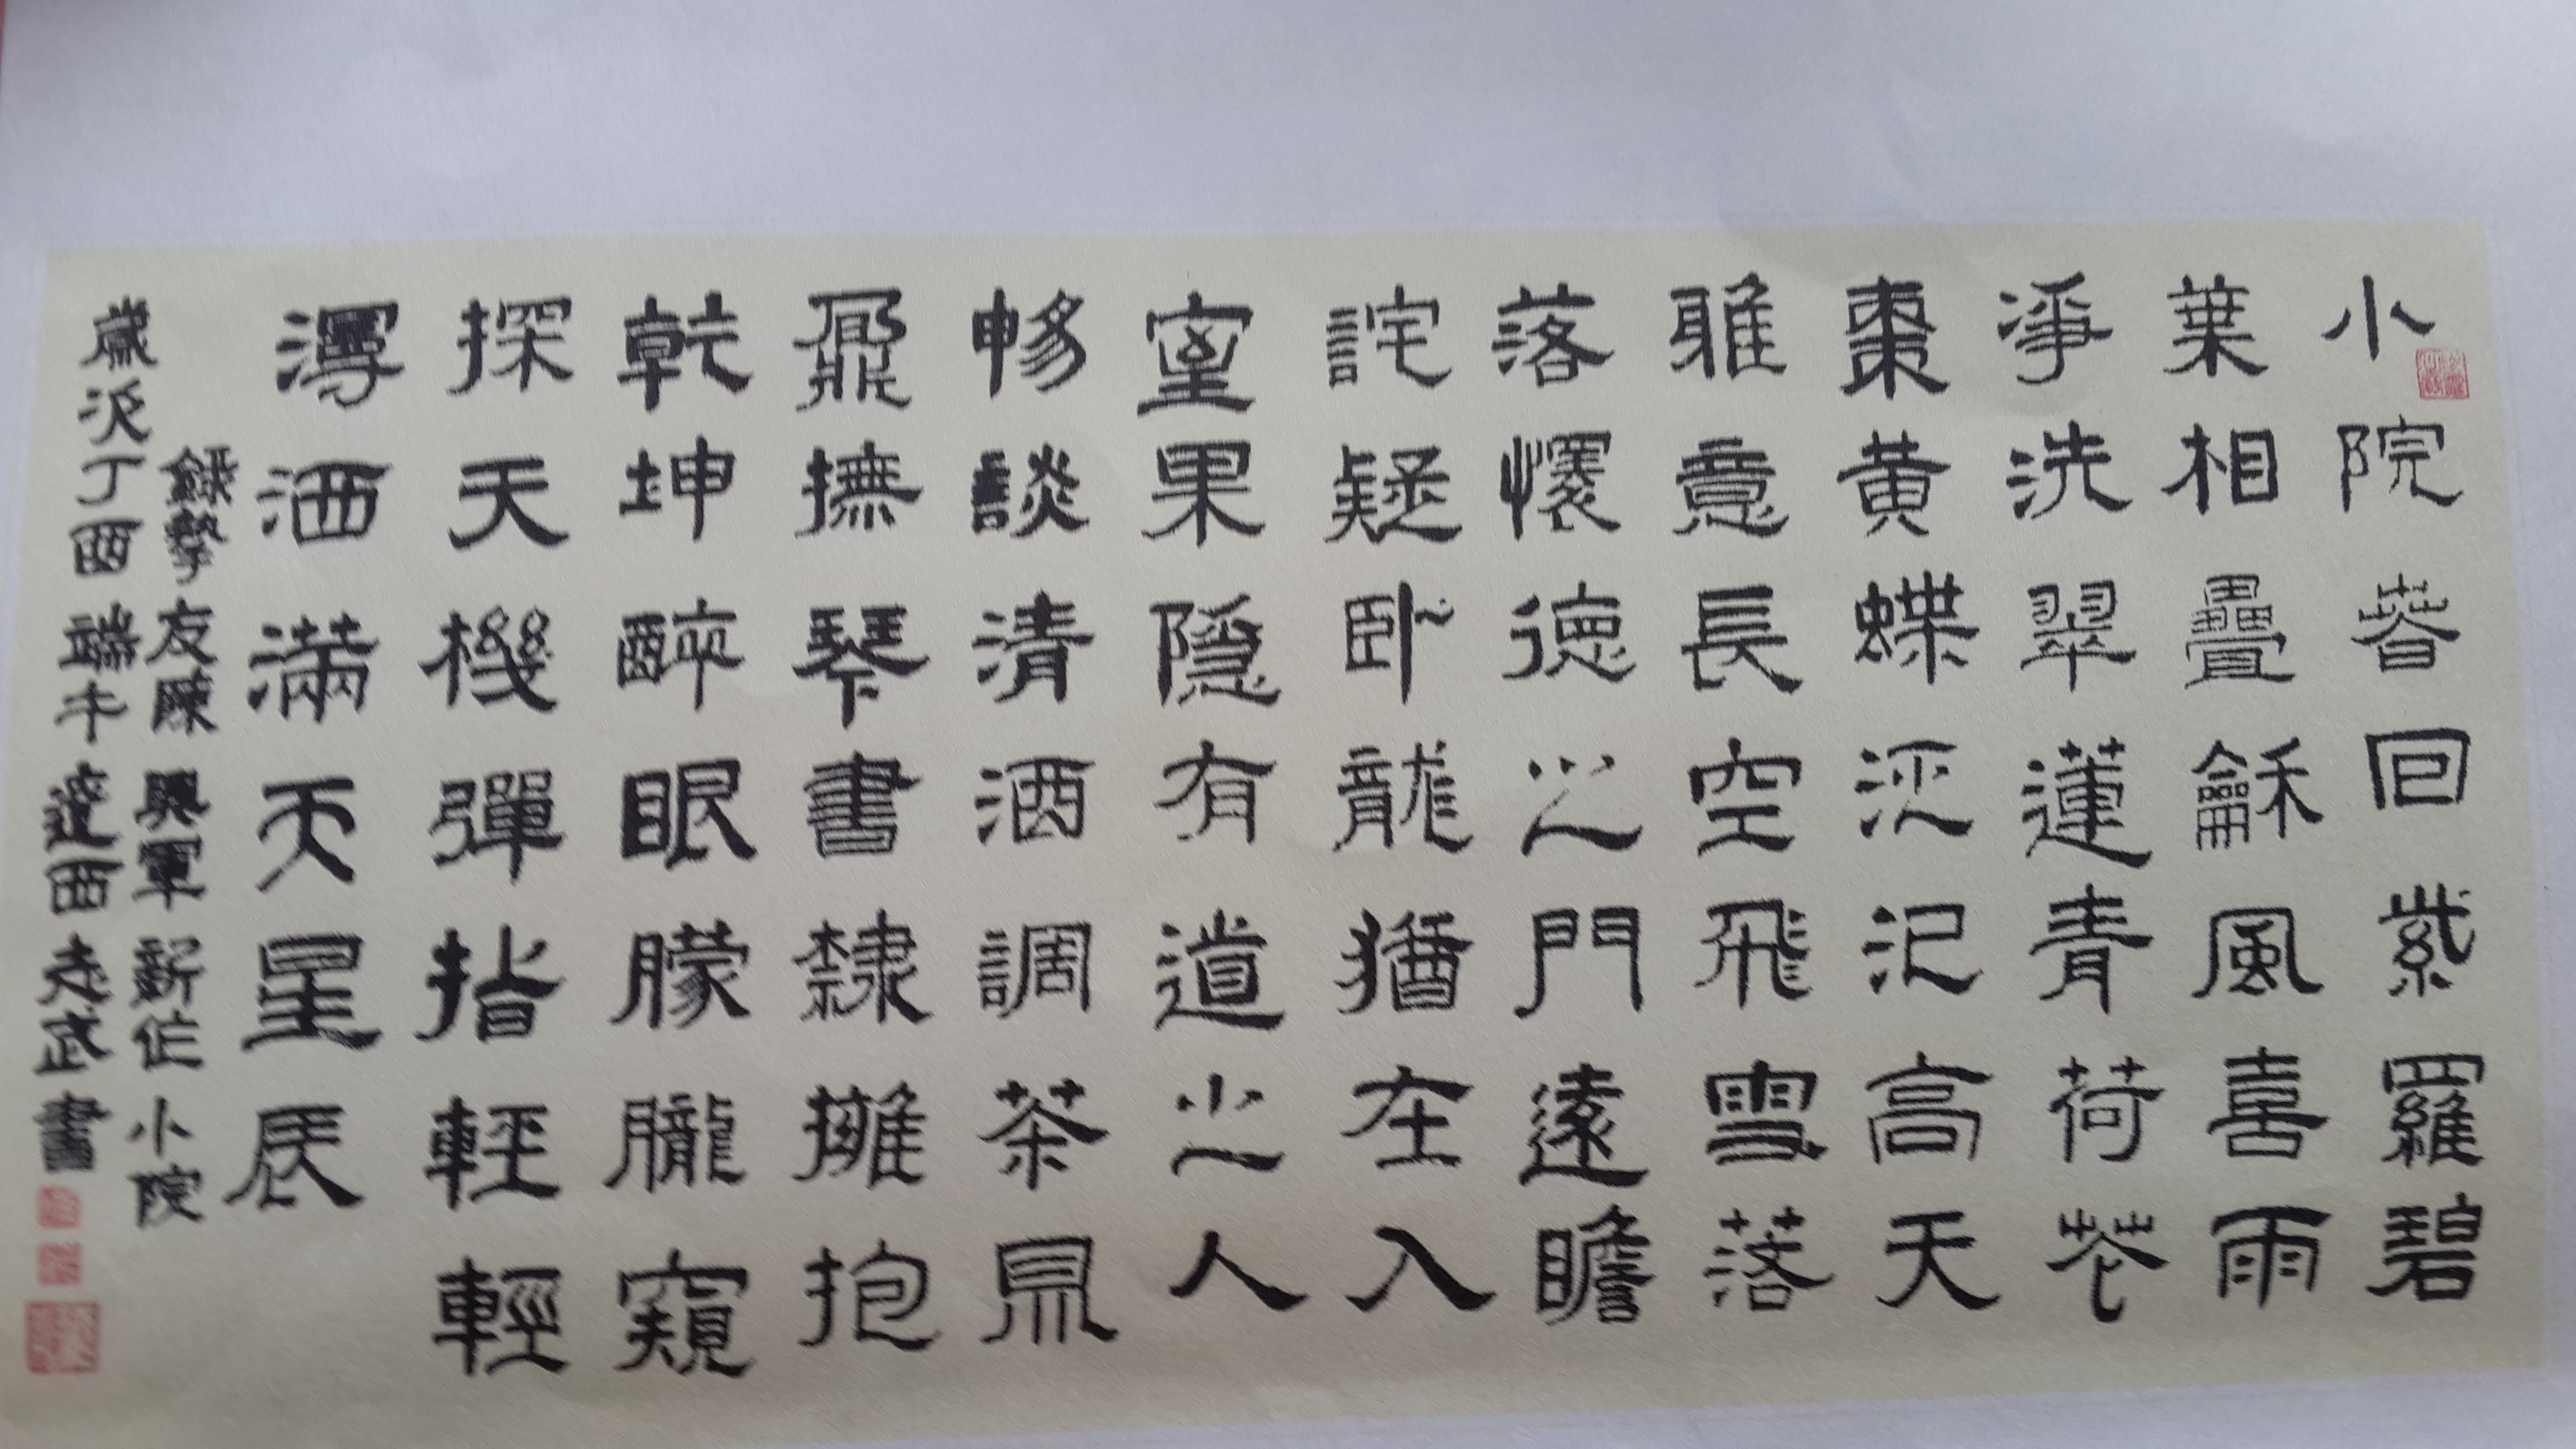 小院春回紫羅碧
葉相疊龢風喜雨
淨洗翠蓮青荷花
棗黄蝶高天
雅意長空飛雪落
落懷德之門遠瞻
詫疑卧龍猶在入
室果隱有道之人
暢談清酒調茶鼎
鼐撫琴書隸擁抱
乾坤醉眼朦朧窺
探天機彈指輕輕
洒滿天星辰
錄摯友陳興軍新作小院
歲次丁酉端午遼西志武書